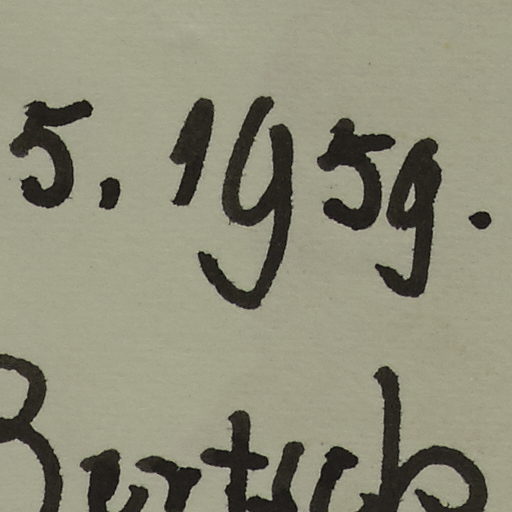 5. 1959.
Bertsch